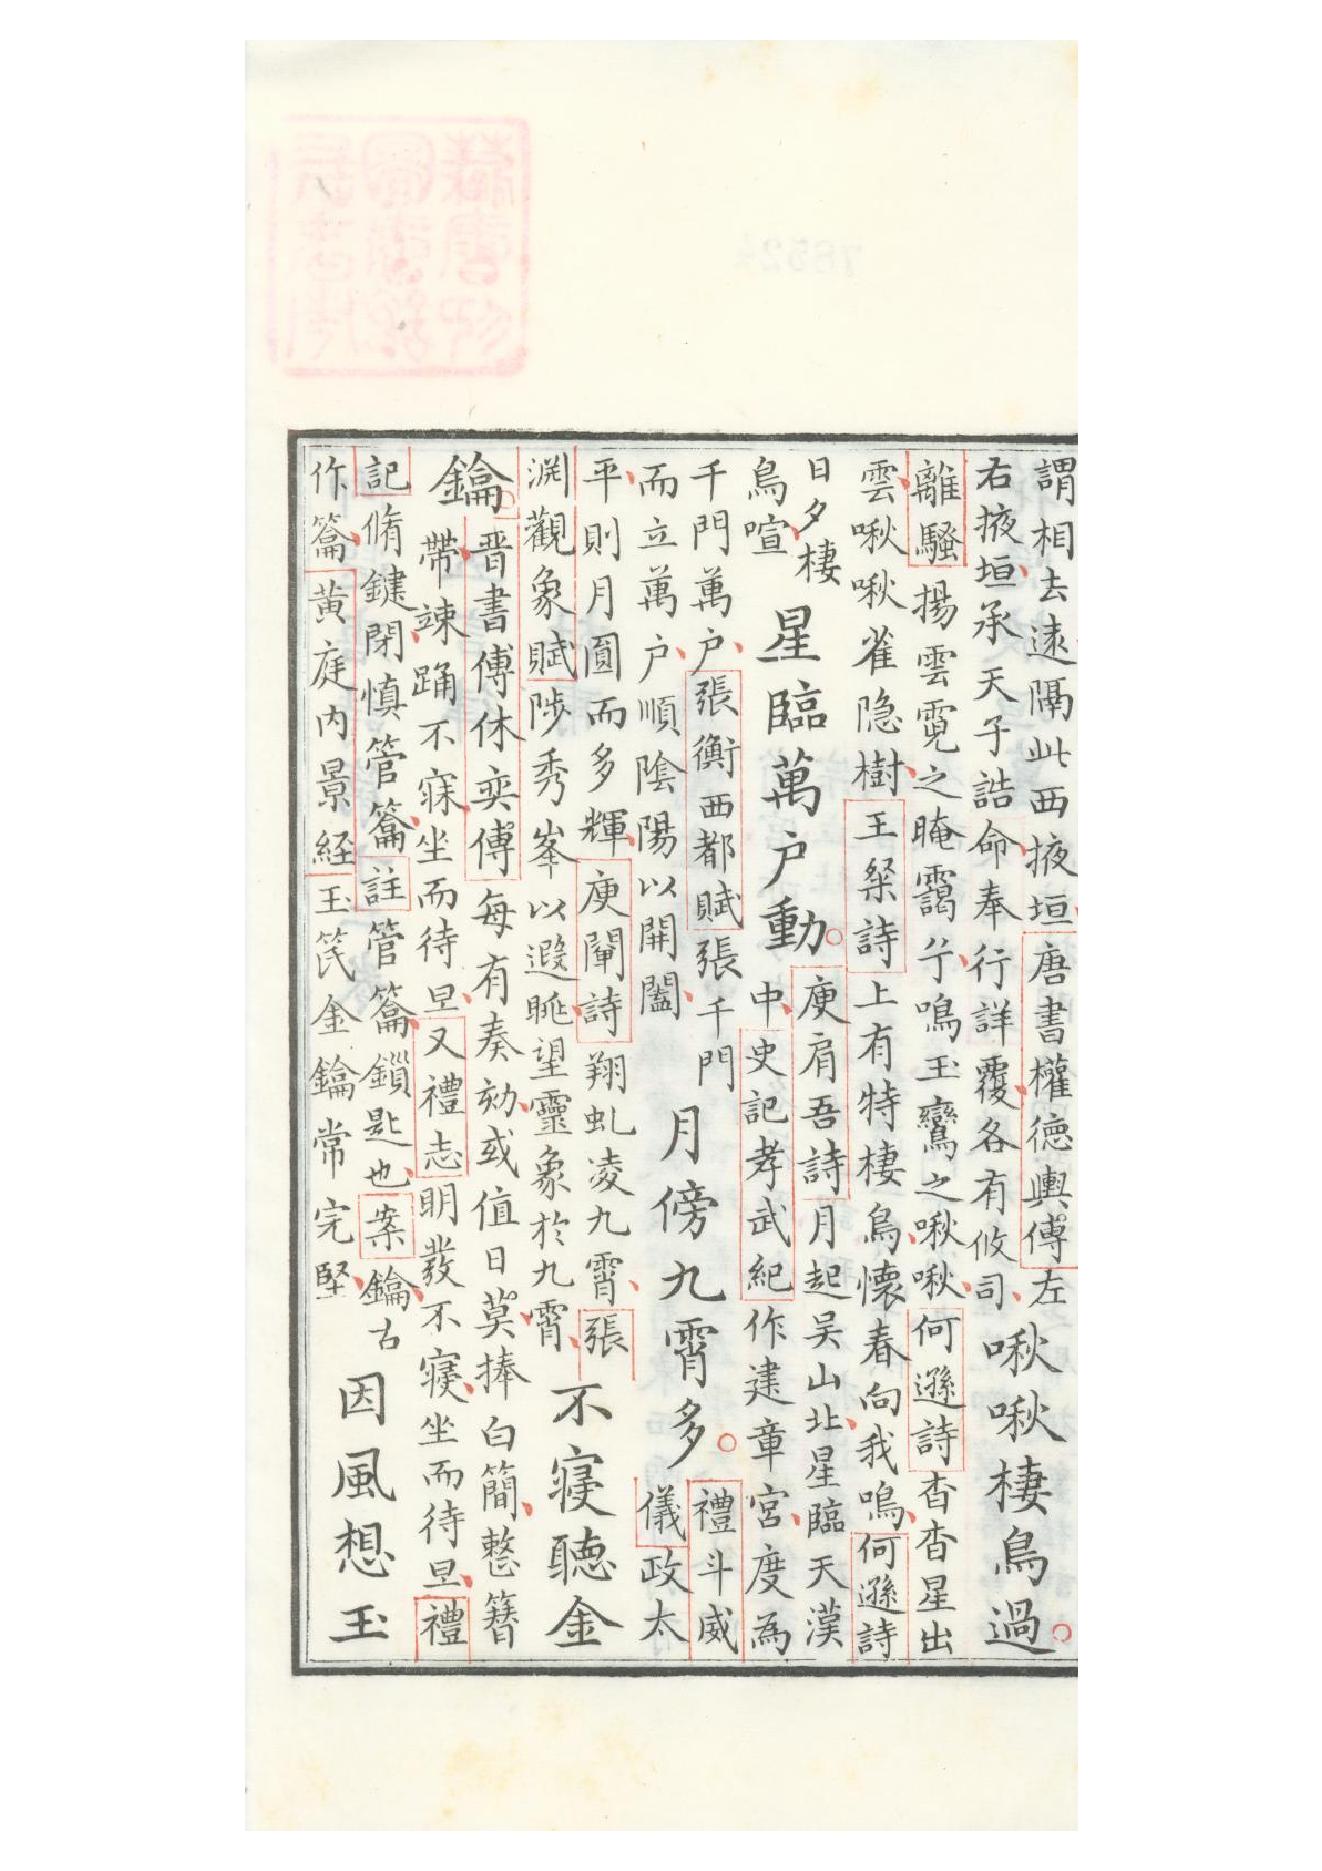 謂相去遠隔此西掖垣唐書權德輿傳左
右掖垣承天子誥命奉行詳覆各有攸司
啾啾棲鳥過
離騷揚雲霓之晻靄兮鳴玉鸞之啾啾何遜詩杳杳星出
雲啾啾雀隐樹王粲詩上有特棲鳥懷春向我鳴何遜詩
日夕棲
鳥喧
星臨萬户動
庾肩吾詩月起吴山北星臨天漢
中史記孝武紀作建章宮度為
千門萬户張衡西都賦張千門
而立萬户順陰陽以開闔
月傍九霄多
禮斗威
儀政太
平則月圓而多輝庾闡詩翔虬凌九霄張
淵觀象賦陟秀峯以遐眺望靈象於九霄
不寝聽金
鑰
晋書傅休奕傅每有奏劾或值日莫捧白簡整簪
帶竦踊不寐坐而待旦又禮志明發不寝坐而待旦禮
記脩鍵閉慎管籥註管籥鎖匙也案鑰古
作籥黄庭内景経玉笢金鑰常完堅
因風想玉